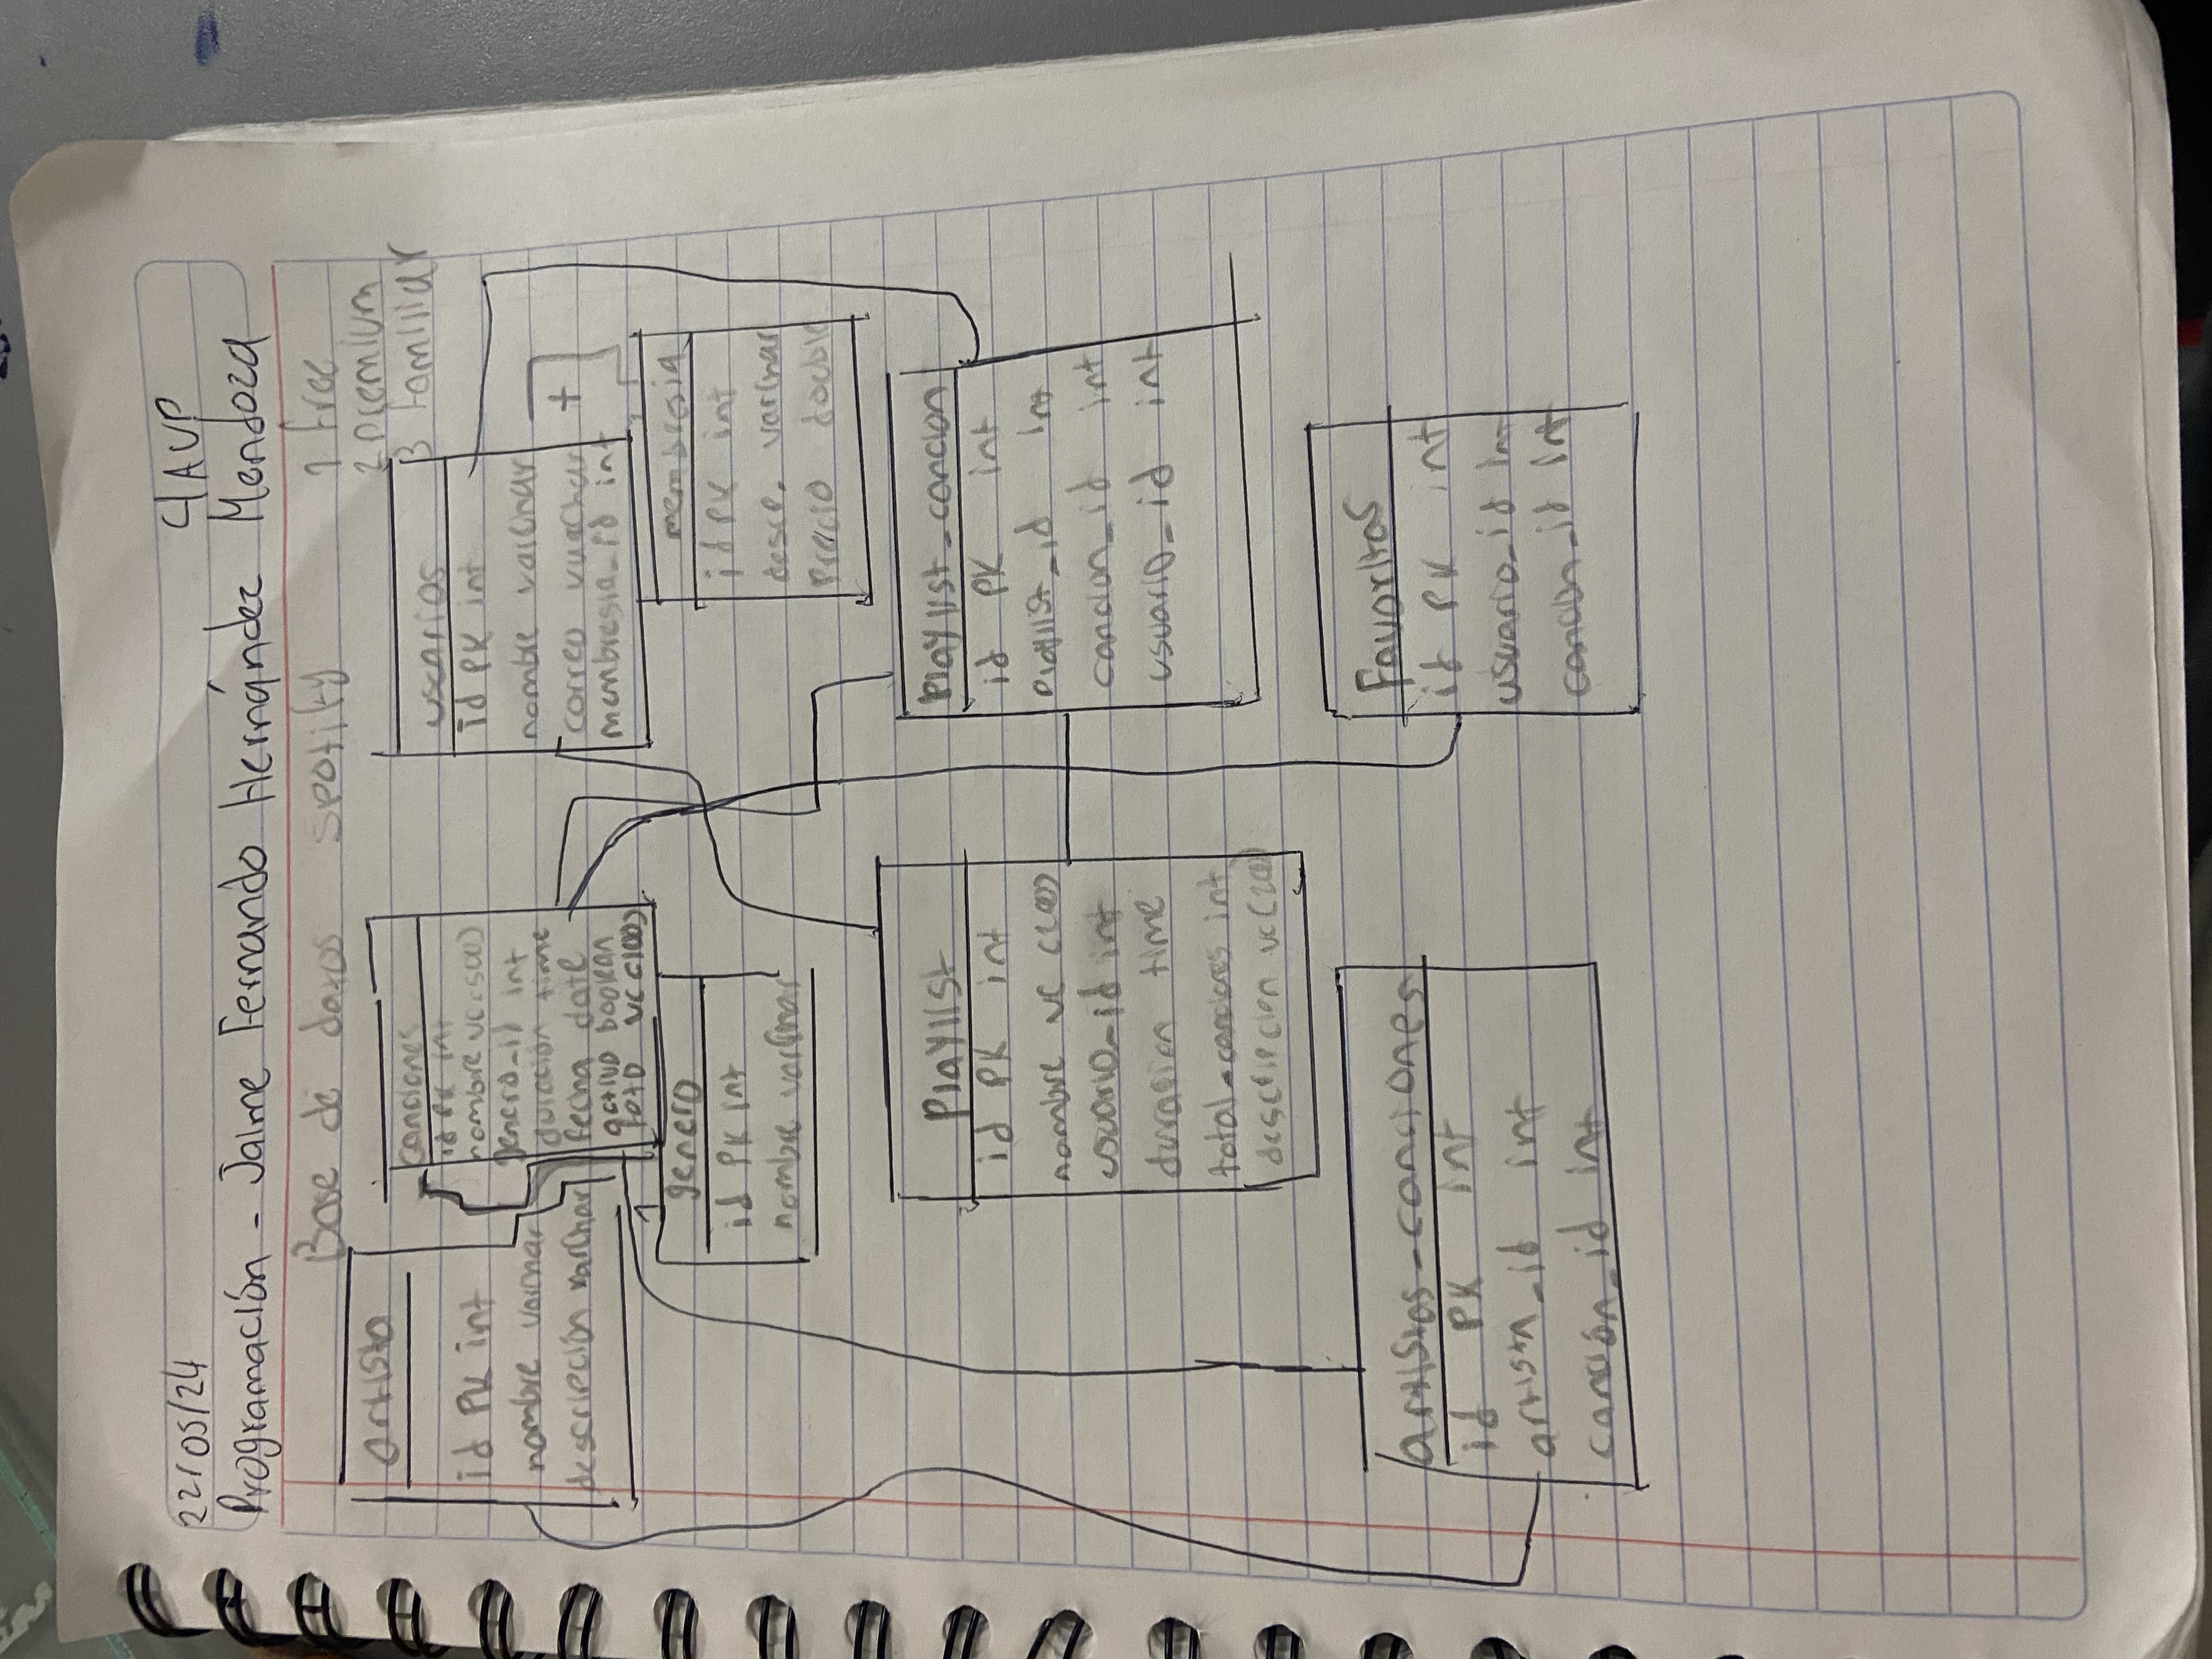 22/05/24
4AVP
Programación - Jaime Fernando Hernández Mendoza
Base de datos Spotify
1 free
2 premium
3 familiar
artista
id PK int
nombre varchar
descripción varchar
canciones
id PK int
nombre vc(500)
genero_id int
duración time
fecha date
activo boolean
foto vc(100)
usuarios
id PK int
nombre varchar
correo varchar +
membresia_id int
genero
id PK int
nombre varchar
membresia
id PK int
descp. varchar
precio double
Playlist
id PK int
nombre vc (200)
usuario_id int
duración time
total_canciones int
descripcion vc(200)
Playlist_cancion
id PK int
playlist_id int
cancion_id int
usuario_id int
artistas_canciones
id PK int
artista_id int
canción_id int
Favoritas
id PK int
usuario_id int
canción_id int